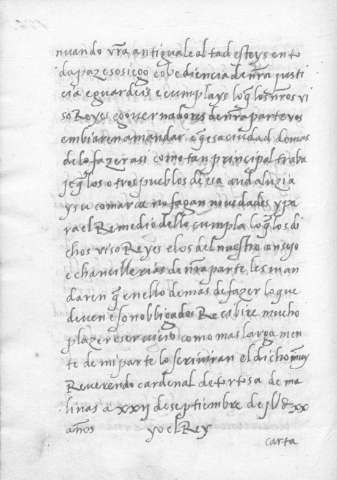 nuando vra antigua lealtad esteys en to
da paz e sosiego e obediencia de nra justi
cia e guardeis e cumplays lo q los nros vi
so Reyes e governadores de nra parte vos
embiaren a mandar e q esa ciudad demas
de lo fazer asi como tan principal traba
je q los otros pueblos de esa andaluzia
y su comarca no fagan novedades y pa
ra el Remedio dello cumpla lo q los di
chos viso Reyes e los del nuestro consejo
e chancillerias de nra parte les man
daren q en ello demas de fazer lo que
deven e son obligados Recibire mucho
plazer e servicio como mas larga men
te de mi parte lo scriviran el dicho muy
Reverendo cardenal de tortosa de ma
linas a xxii de septiembre de jU d xx
años yo el Rey
carta